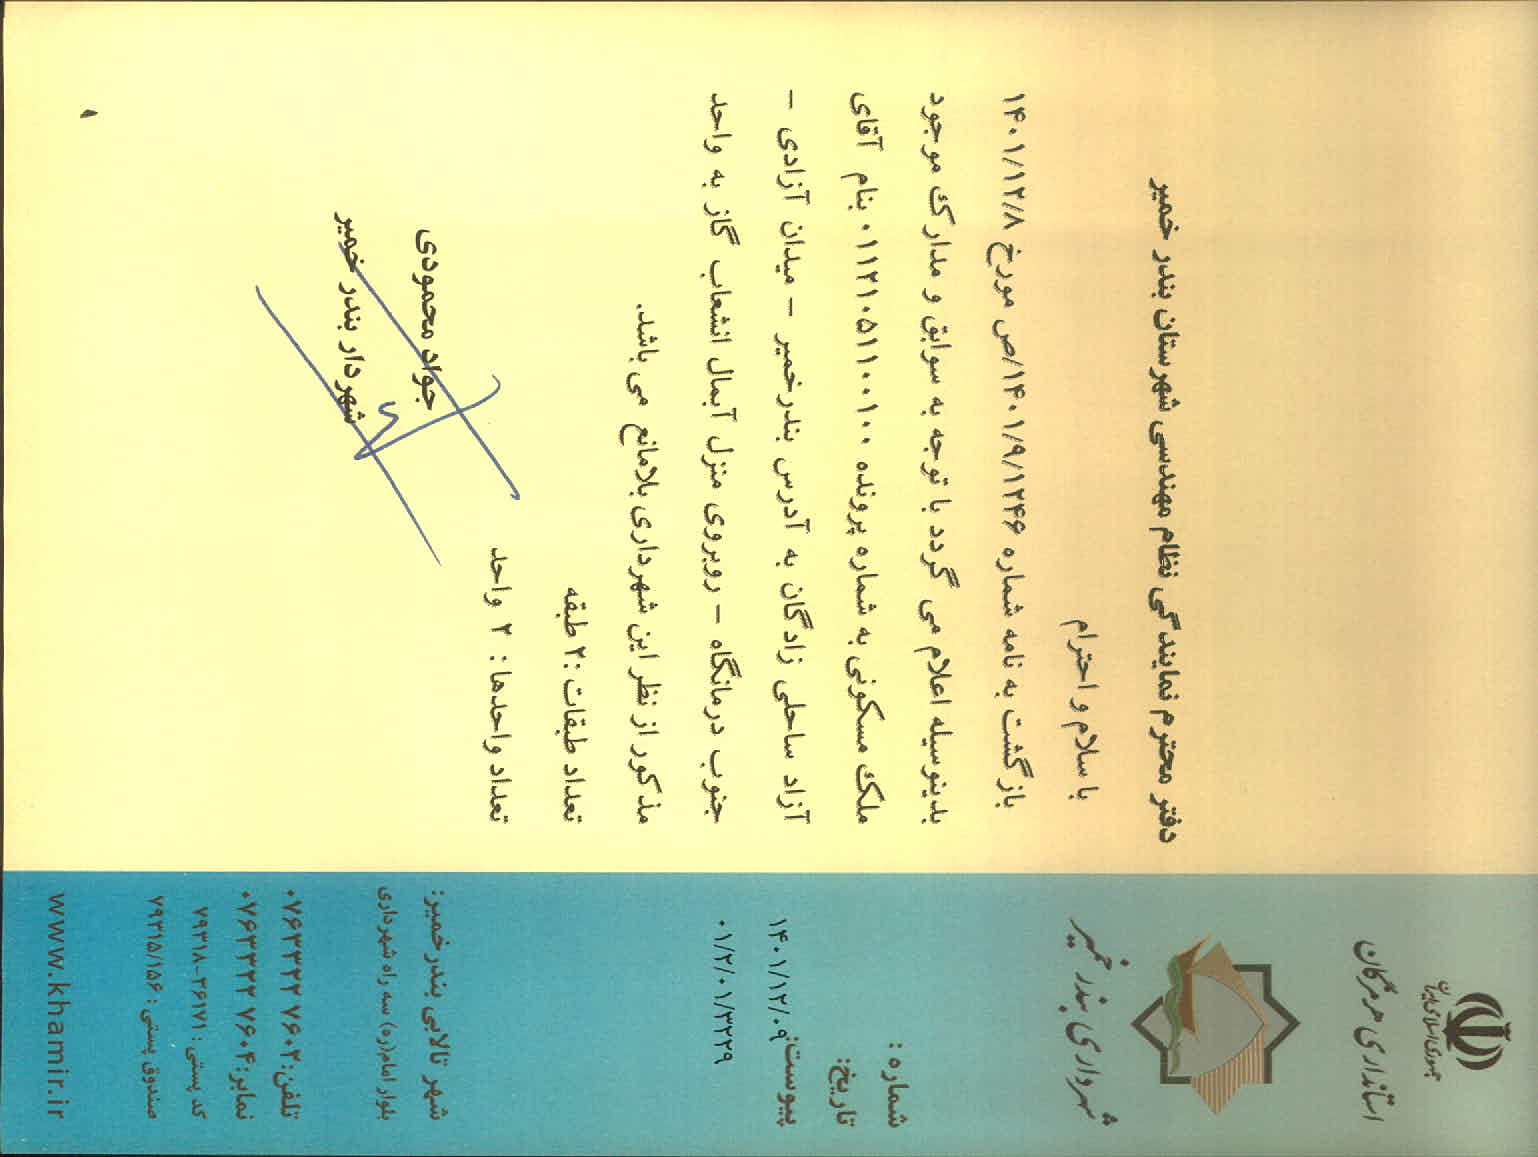 جمهوری اسلامی ایران
استانداری هرمزگان
شهرداری بندر خمیر
شماره :
تاریخ:
پیوست:
۱۴۰۱/۱۲/۰۹
۰۱/۲/۰۱/۳۲۲۹
شهر تالابی بندرخمیر:
بلوار امام(ره) سه راه شهرداری
تلفن: ۰۷۶۳۳۲۲ ۷۶۰۲
نمابر: ۰۷۶۳۳۲۲ ۷۶۰۴
کد پستی : ۳۶۱۷۱-۷۹۳۱۸
صندوق پستی : ۷۹۳۱۵/۱۵۶
www.khamir.ir
دفتر محترم نمایندگی نظام مهندسی شهرستان بندر خمیر
با سلام و احترام
بازگشت به نامه شماره ۱۴۰۱/۹/۱۲۴۶/ص مورخ ۱۴۰۱/۱۲/۸
بدینوسیله اعلام می گردد با توجه به سوابق و مدارک موجود
ملک مسکونی به شماره پرونده ۰۱۱۲۱۰۵۱۱۰۰۱۰۰ بنام آقای
آزاد ساحلی زادگان به آدرس بندرخمیر – میدان آزادی –
جنوب درمانگاه – روبروی منزل آبمال انشعاب گاز به واحد
مذکور از نظر این شهرداری بلامانع می باشد.
تعداد طبقات :۲ طبقه
تعداد واحدها : ۲ واحد
جواد محمودی
شهردار بندر خمیر